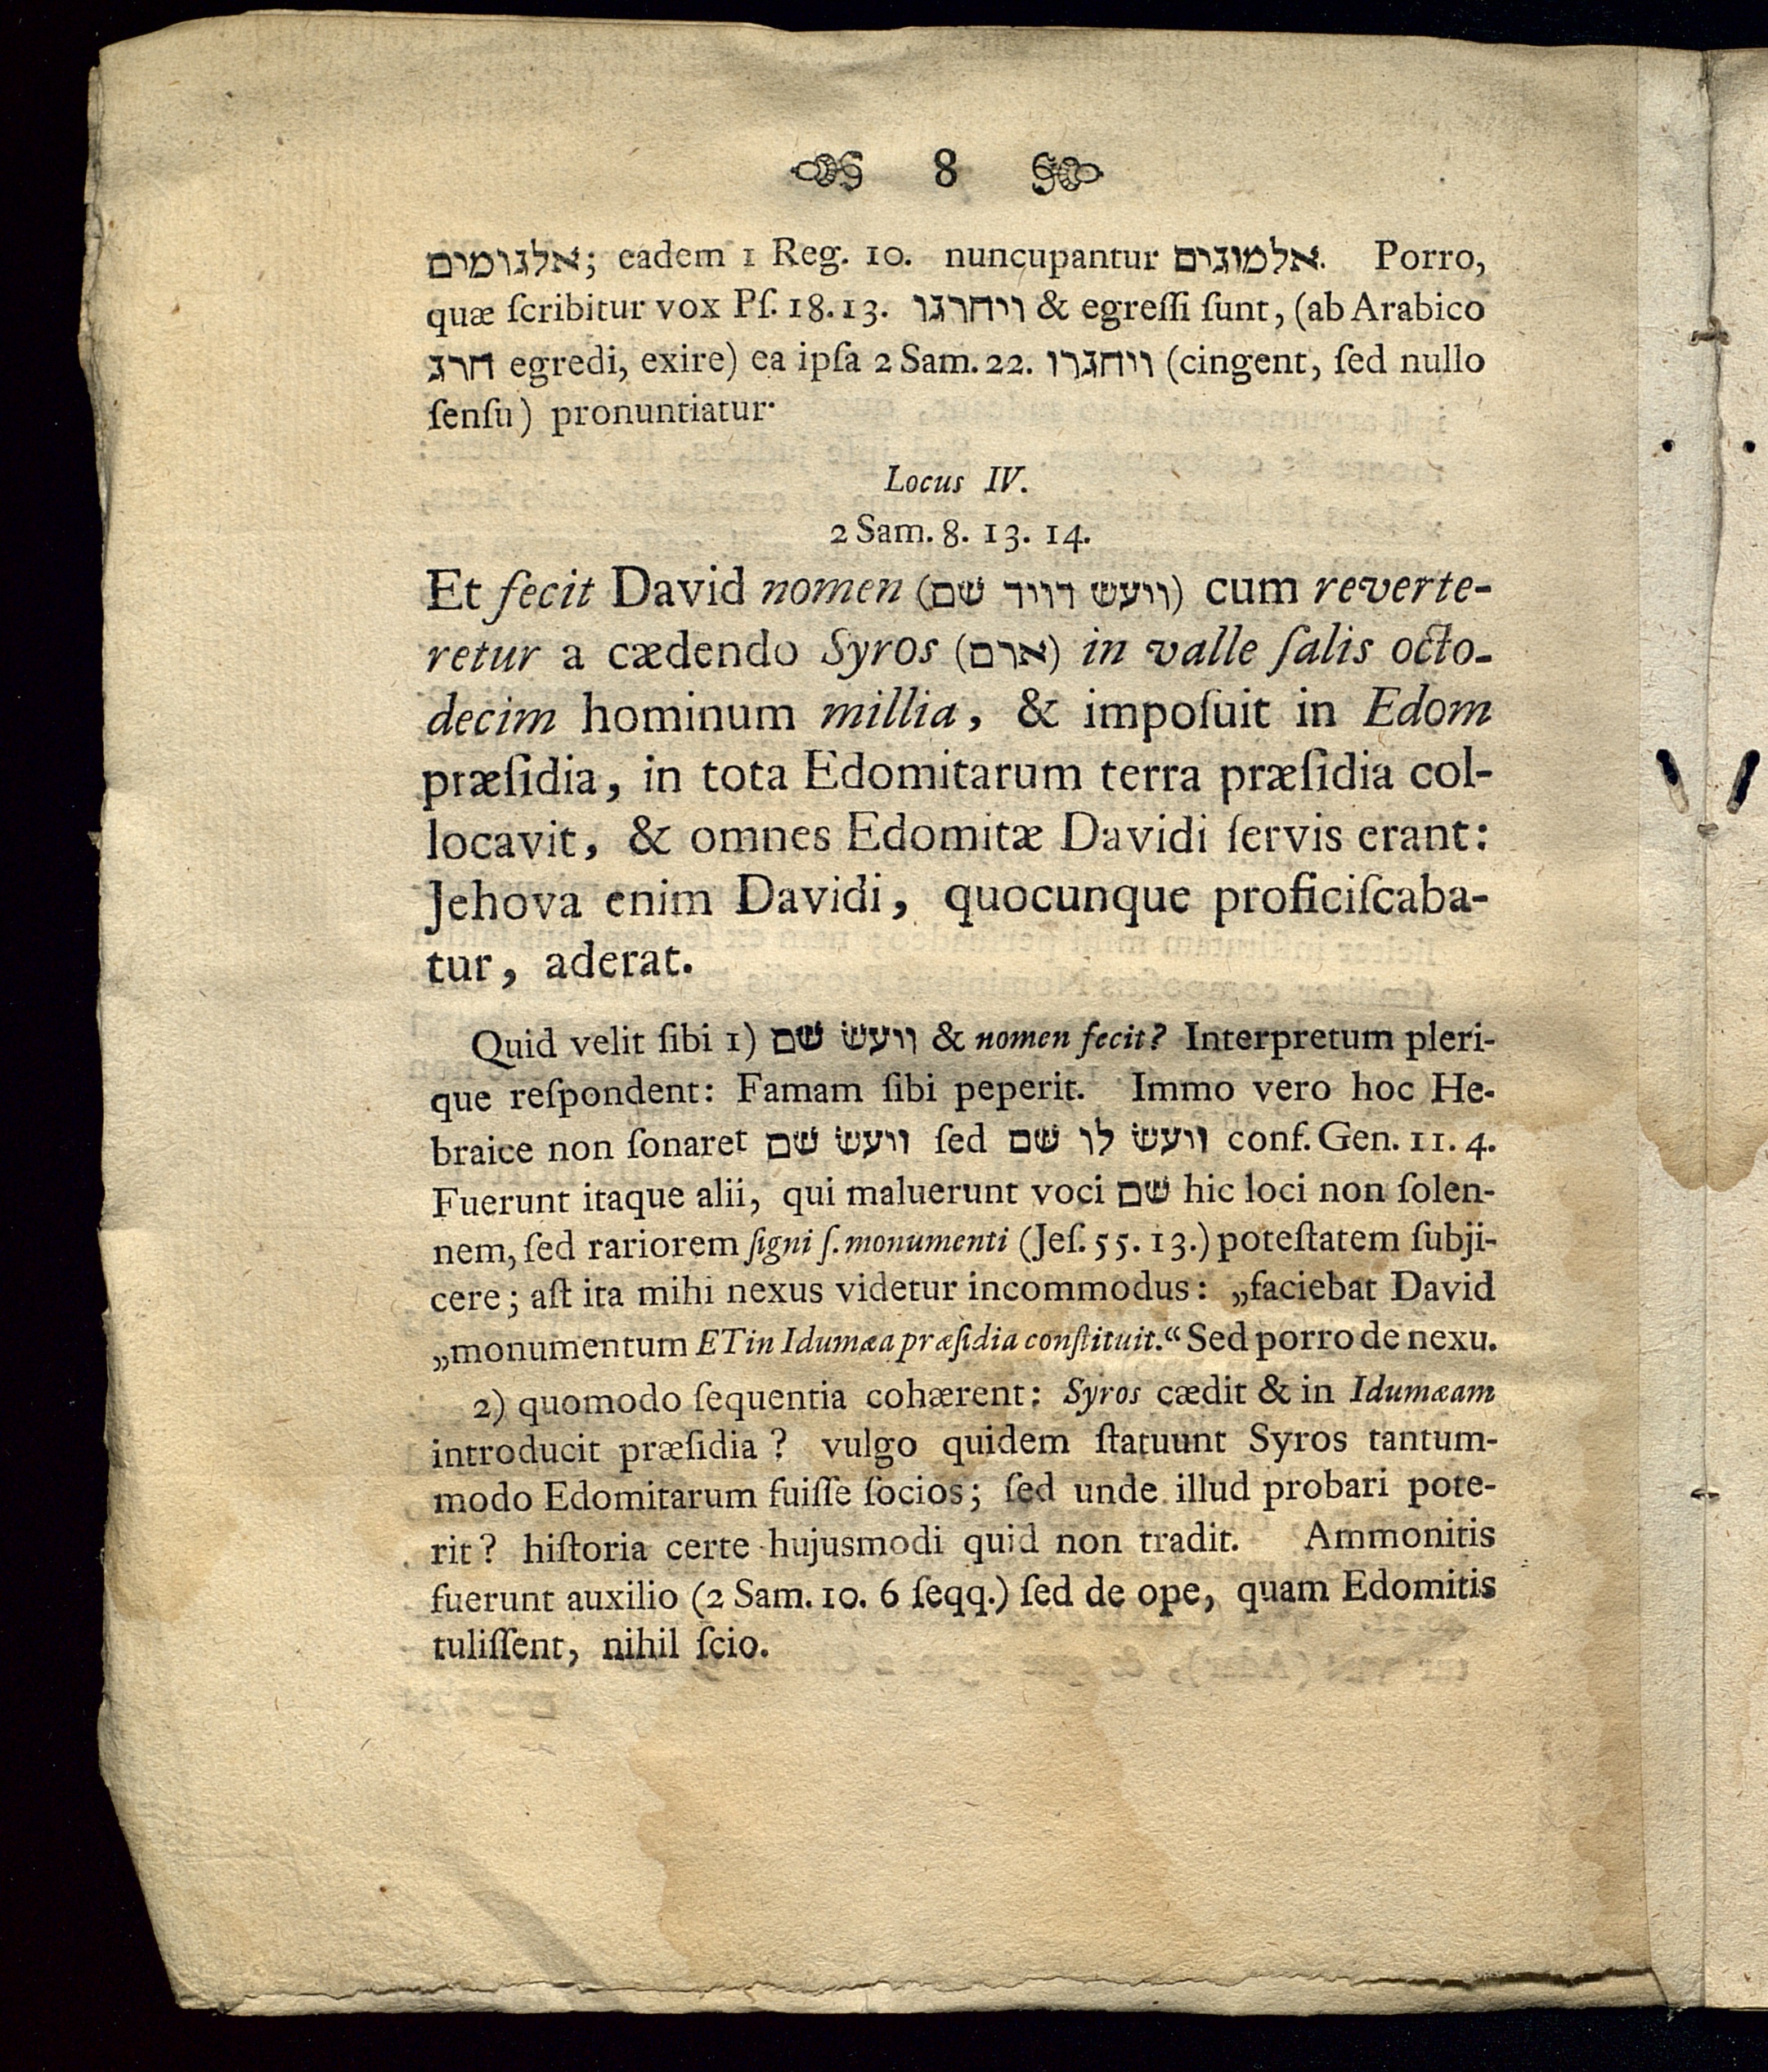 8
אלגומים; eadem 1 Reg. 10. nuncupantur אלמוגים. Porro,
quæ ſcribitur vox Pſ. 18. 13. ויחרגו & egreſſi ſunt, (ab Arabico
חרג egredi, exire) ea ipſa 2 Sam. 22. ויחגרו (cingent, ſed nullo
ſenſu) pronuntiatur·
Locus IV.
2 Sam. 8. 13. 14.
Et fecit David nomen (ויעש דויד שם) cum reverte-
retur a cædendo Syros (ארם) in valle ſalis octo-
decim hominum millia, & impoſuit in Edom
præſidia, in tota Edomitarum terra præſidia col-
locavit, & omnes Edomitæ Davidi ſervis erant:
Jehova enim Davidi, quocunque proficiſcaba-
tur, aderat.
Quid velit ſibi 1) ויעשׂ שׁם & nomen fecit? Interpretum pleri-
que reſpondent: Famam ſibi peperit. Immo vero hoc He-
braice non ſonaret ויעשׂ שׁם ſed ויעשׂ לו שׁם conf. Gen. 11. 4.
Fuerunt itaque alii, qui maluerunt voci שׁם hic loci non ſolen-
nem, ſed rariorem ſigni ſ. monumenti (Jeſ. 55. 13.) poteſtatem ſubji-
cere; aſt ita mihi nexus videtur incommodus: „faciebat David
„monumentum ET in Idumæa præſidia conſtituit.“ Sed porro de nexu.
2) quomodo ſequentia cohærent: Syros cædit & in Idumæam
introducit præſidia? vulgo quidem ſtatuunt Syros tantum-
modo Edomitarum fuiſſe ſocios; ſed unde illud probari pote-
rit? hiſtoria certe hujusmodi quid non tradit. Ammonitis
fuerunt auxilio (2 Sam. 10. 6 ſeqq.) ſed de ope, quam Edomitis
tuliſſent, nihil ſcio.